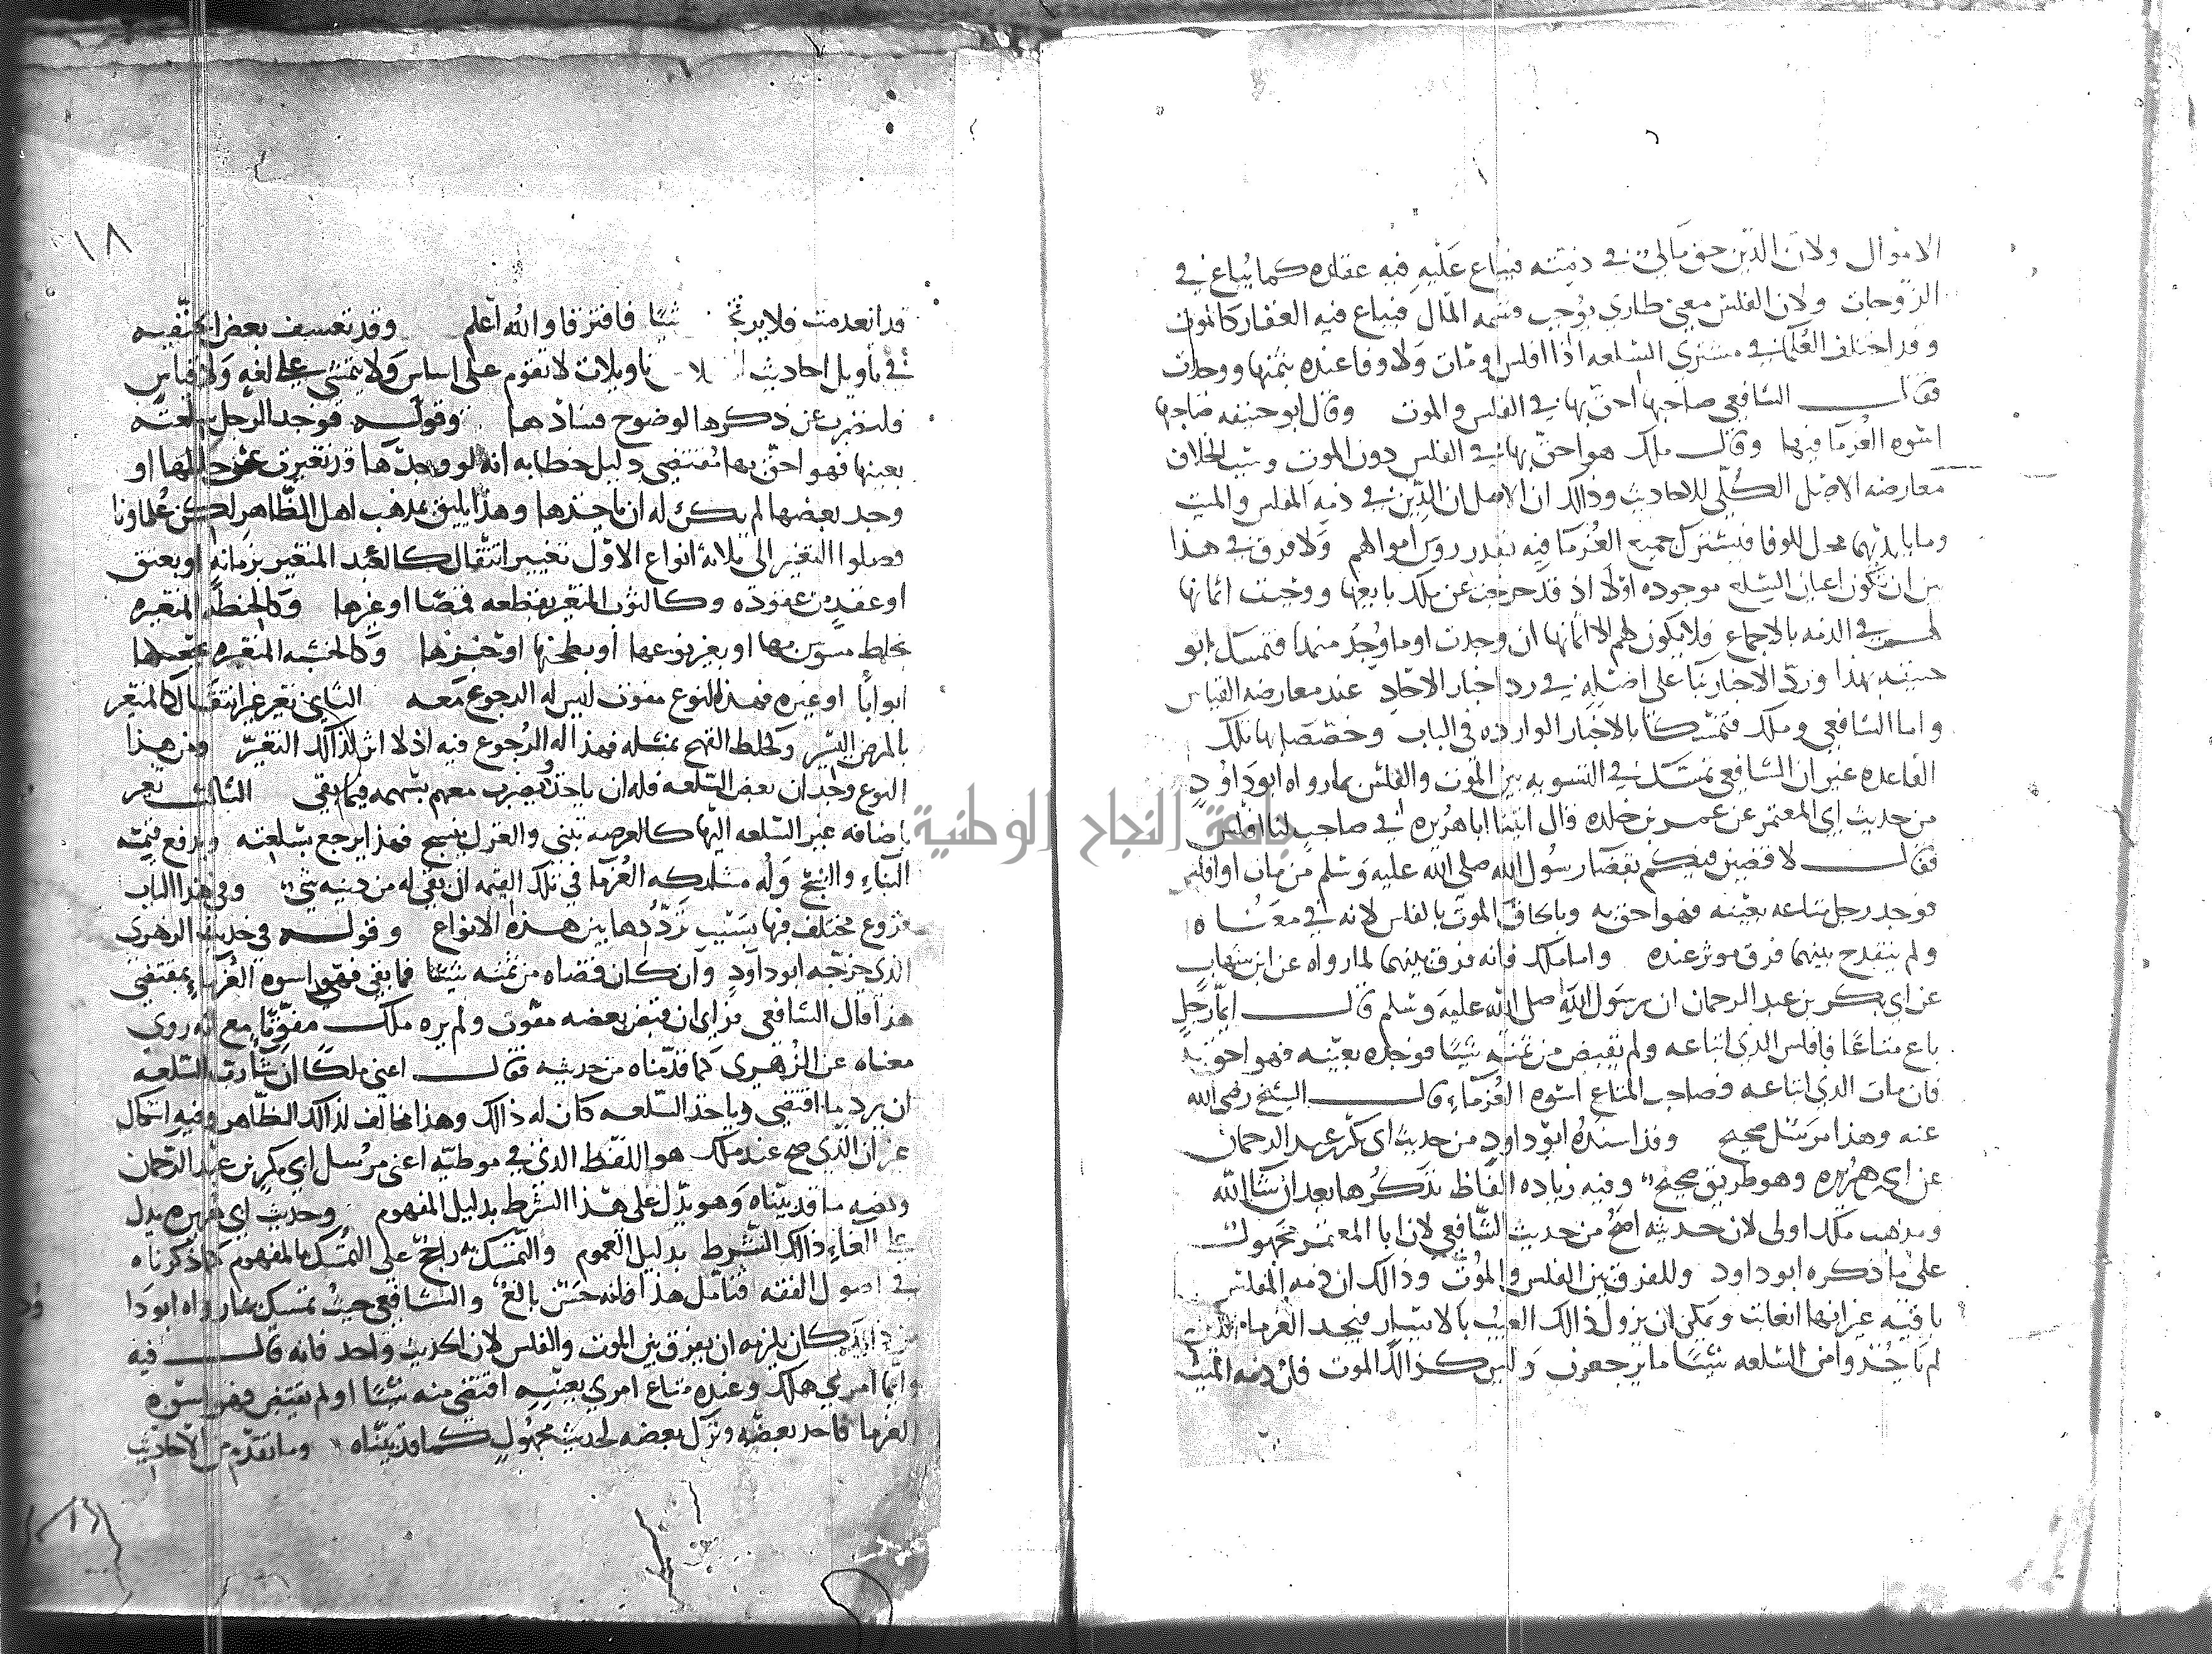 الاموال ولان الدين حق مالي في ذمته فيباع عليه فيه عقاره كما يباع في
الزوجات ولان الفلس معنى طاري يوجب قسمه المال فيباع فيه العقار كالموت
وقد اختلف العلما في مشتري السلعه اذا افلس او مات ولا وفا عنده بثمنها ووجدت
فقال الشافعي صاحبها احق بها في الفلس والموت وقال ابو حنيفه صاحبها
اسوه الغرما فيها وقال ملك هو احق بها في الفلس دون الموت وسبب الخلاف
معارضه الاصل الكلي للاحاديث وذالك ان الاصل ان الدين في ذمه المفلس والميت
وما بايديهما محل للوفا فيشترك جميع الغرما فيه بقدر روس اموالهم ولا فرق في هذا
بين ان تكون اعيان السلع موجوده اولا اذ قد خرجت عن ملك بايعها ووجبت اثمانها
لهم في الذمه بالاجماع فلا يكون لهم الا اثمانها ان وجدت او ما وجد منها فتمسك ابو
حنيفه بهذا ورد الاخبار بنا على اصله في رد اخبار الاحاد عند معارضه القياس
واما الشافعي وملك فتمسكا بالاخبار الوارده في الباب وخصصا بها تلك
القاعده غير ان الشافعي تمسك في التسويه بين الموت والفلس بما رواه ابو داود
من حديث ابي المعتمر عن عمر بن خلده قال اتينا ابا هريره في صاحب لنا افلس
فقال لاقضين فيكم بقضا رسول الله صلى الله عليه وسلم من مات او افلس
فوجد رجل متاعه بعينه فهو احق به وبالحاق الموت بالفلس لانه في معناه
ولم ينقدح بينهما فرق موثر عنده واما ملك فانه فرق بينهما لما رواه عن ابن شهاب
عن ابي بكر بن عبد الرحمان ان رسول الله صلى الله عليه وسلم قال ايما رجل
باع متاعا فافلس الذي ابتاعه ولم يقبض من ثمنه شيئا فوجده بعينه فهو احق به
فان مات الذي ابتاعه فصاحب المتاع اسوه الغرماء قال الشيخ رضي الله
عنه وهذا مرسل صحيح وقد اسنده ابو داود من حديث ابي بكر بن عبد الرحمان
عن ابي هريره وهو طريق صحيح وفيه زياده الفاظ نذكرها بعد ان شا الله
ومذهب ملك اولى لان حديثه اصح من حديث الشافعي لان ابا المعتمر مجهول
على ما ذكره ابو داود وللفرق بين الفلس والموت وذالك ان ذمه المفلس
باقيه غير انها انعابت ويمكن ان يزول ذالك العيب بالايسار فيجد الغرما الذين
لم ياخذوا من السلعه شيئا ما يرجعون وليس كذالك الموت فان ذمه الميت
١٨
قد انعدمت فلا يرتجى شيئا فافترقا والله اعلم وقد تعسف بعض الحنفيه
في تاويل احاديث تاويلات لا تقوم على اساس ولا تتمشى على لغه ولا قياس
فلنضرب عن ذكرها لوضوح فسادها وقوله فوجد الرجل سلعته
بعينها فهو احق بها يقتضي دليل خطابه انه لو وجدها قد تغيرت عن حالها او
وجد بعضها لم يكن له ان ياخذها وهذا يليق بمذهب اهل الظاهر لكن علماونا
فصلوا التغير الى ثلاثه انواع الاول تغيير انتقال كالعبد المتغير بزمانه او بعتق
او عقد من عقوده وكالثوب المتغير بقطعه قمصا او غيرها وكالحنطه المتغيره
بخلط مسوس بها او بغير نوعها او بطحنها او خبزها وكالخشبه المتغيره
ابوابا او غيره فهذا النوع مفوت ليس له الرجوع معه الثاني تغير غير انتقال كالمتغير
بالمرض اليسير وكخلط القمح بمثله فهذا له الرجوع فيه اذ لا اثر لذالك التغير ومن هذا
النوع وجدان بعض السلعه فله ان ياخذ ويضرب معهم بسهمه فيما بقي الثالث تغير
باضافه غير السلعه اليها كالعرصه تبنى والغزل ينسج فهذا يرجع بسلعته ويدفع قيمه
البناء والنسج وله مشاركه الغرما في تلك القيمه ان بقي له من دينه شيء وفي هذا الباب
فروع مختلف فيها بسبب ترددها بين هذه الانواع وقوله في حديث الزهري
الذي خرجه ابو داود وان كان قضاه من ثمنه شيئا فما بقي فهو اسوه الغرماء بمقتضى
هذا قال الشافعي فراى ان قبض بعضه مفوت ولم يره ملك مفوتا مع انه روى
معناه عن الزهري كما قدمناه من حديثه فقال اعني ملكا ان شا رب السلعه
ان يرد ما اقتضى وياخذ السلعه كان له ذالك وهذا مخالف لذالك الظاهر وفيه اشكال
غير ان الذي صح عند ملك هو اللفظ الذي في موطئه اعني مرسل ابي بكر بن عبد الرحمان
وفيه ما قد بيناه وهو يدل على هذا الشرط بدليل المفهوم وحديث ابي هريره يدل
على الغاء ذالك الشرط بدليل العموم والتمسك به راجح على التمسك بالمفهوم كما ذكرناه
في اصول الفقه فتامل هذا فانه حسن بالغ والشافعي حيث تمسك بما رواه ابو دا
كان يلزمه ان يفرق بين الموت والفلس لان الحديث واحد فانه قال فيه
وايما امري هلك وعنده متاع امري بعينه اقتضى منه شيئا او لم يقتض فهو اسوه
الغرما فاخذ بعضه وترك بعضه لحديث مجهول كما قد بيناه وما تقدم من الاحاديث
جامعة النجاح الوطنية